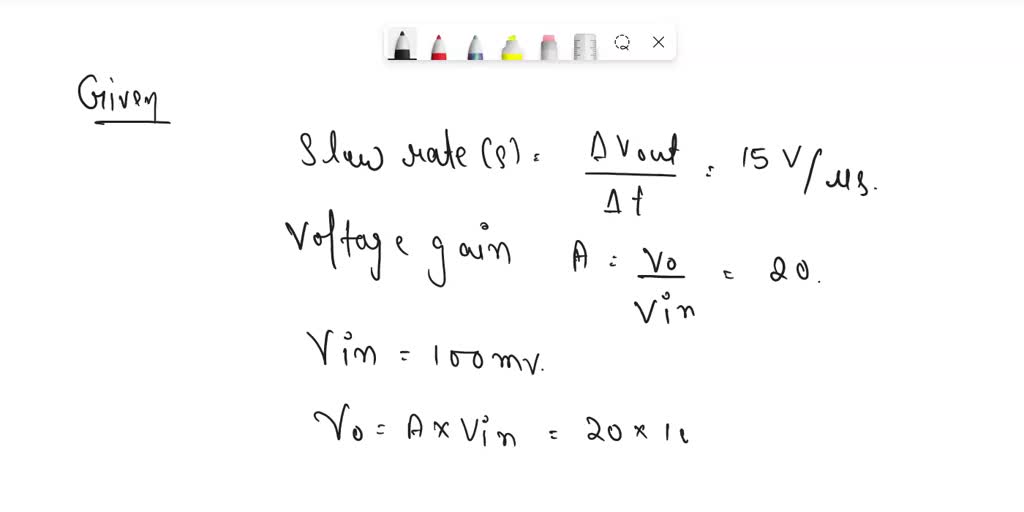 Given
Slew rate (S) = ΔVout / Δt = 15 V/μs.
Voltage gain A = Vo / Vin = 20.
Vin = 100mv.
Vo = A × Vin = 20 × 10